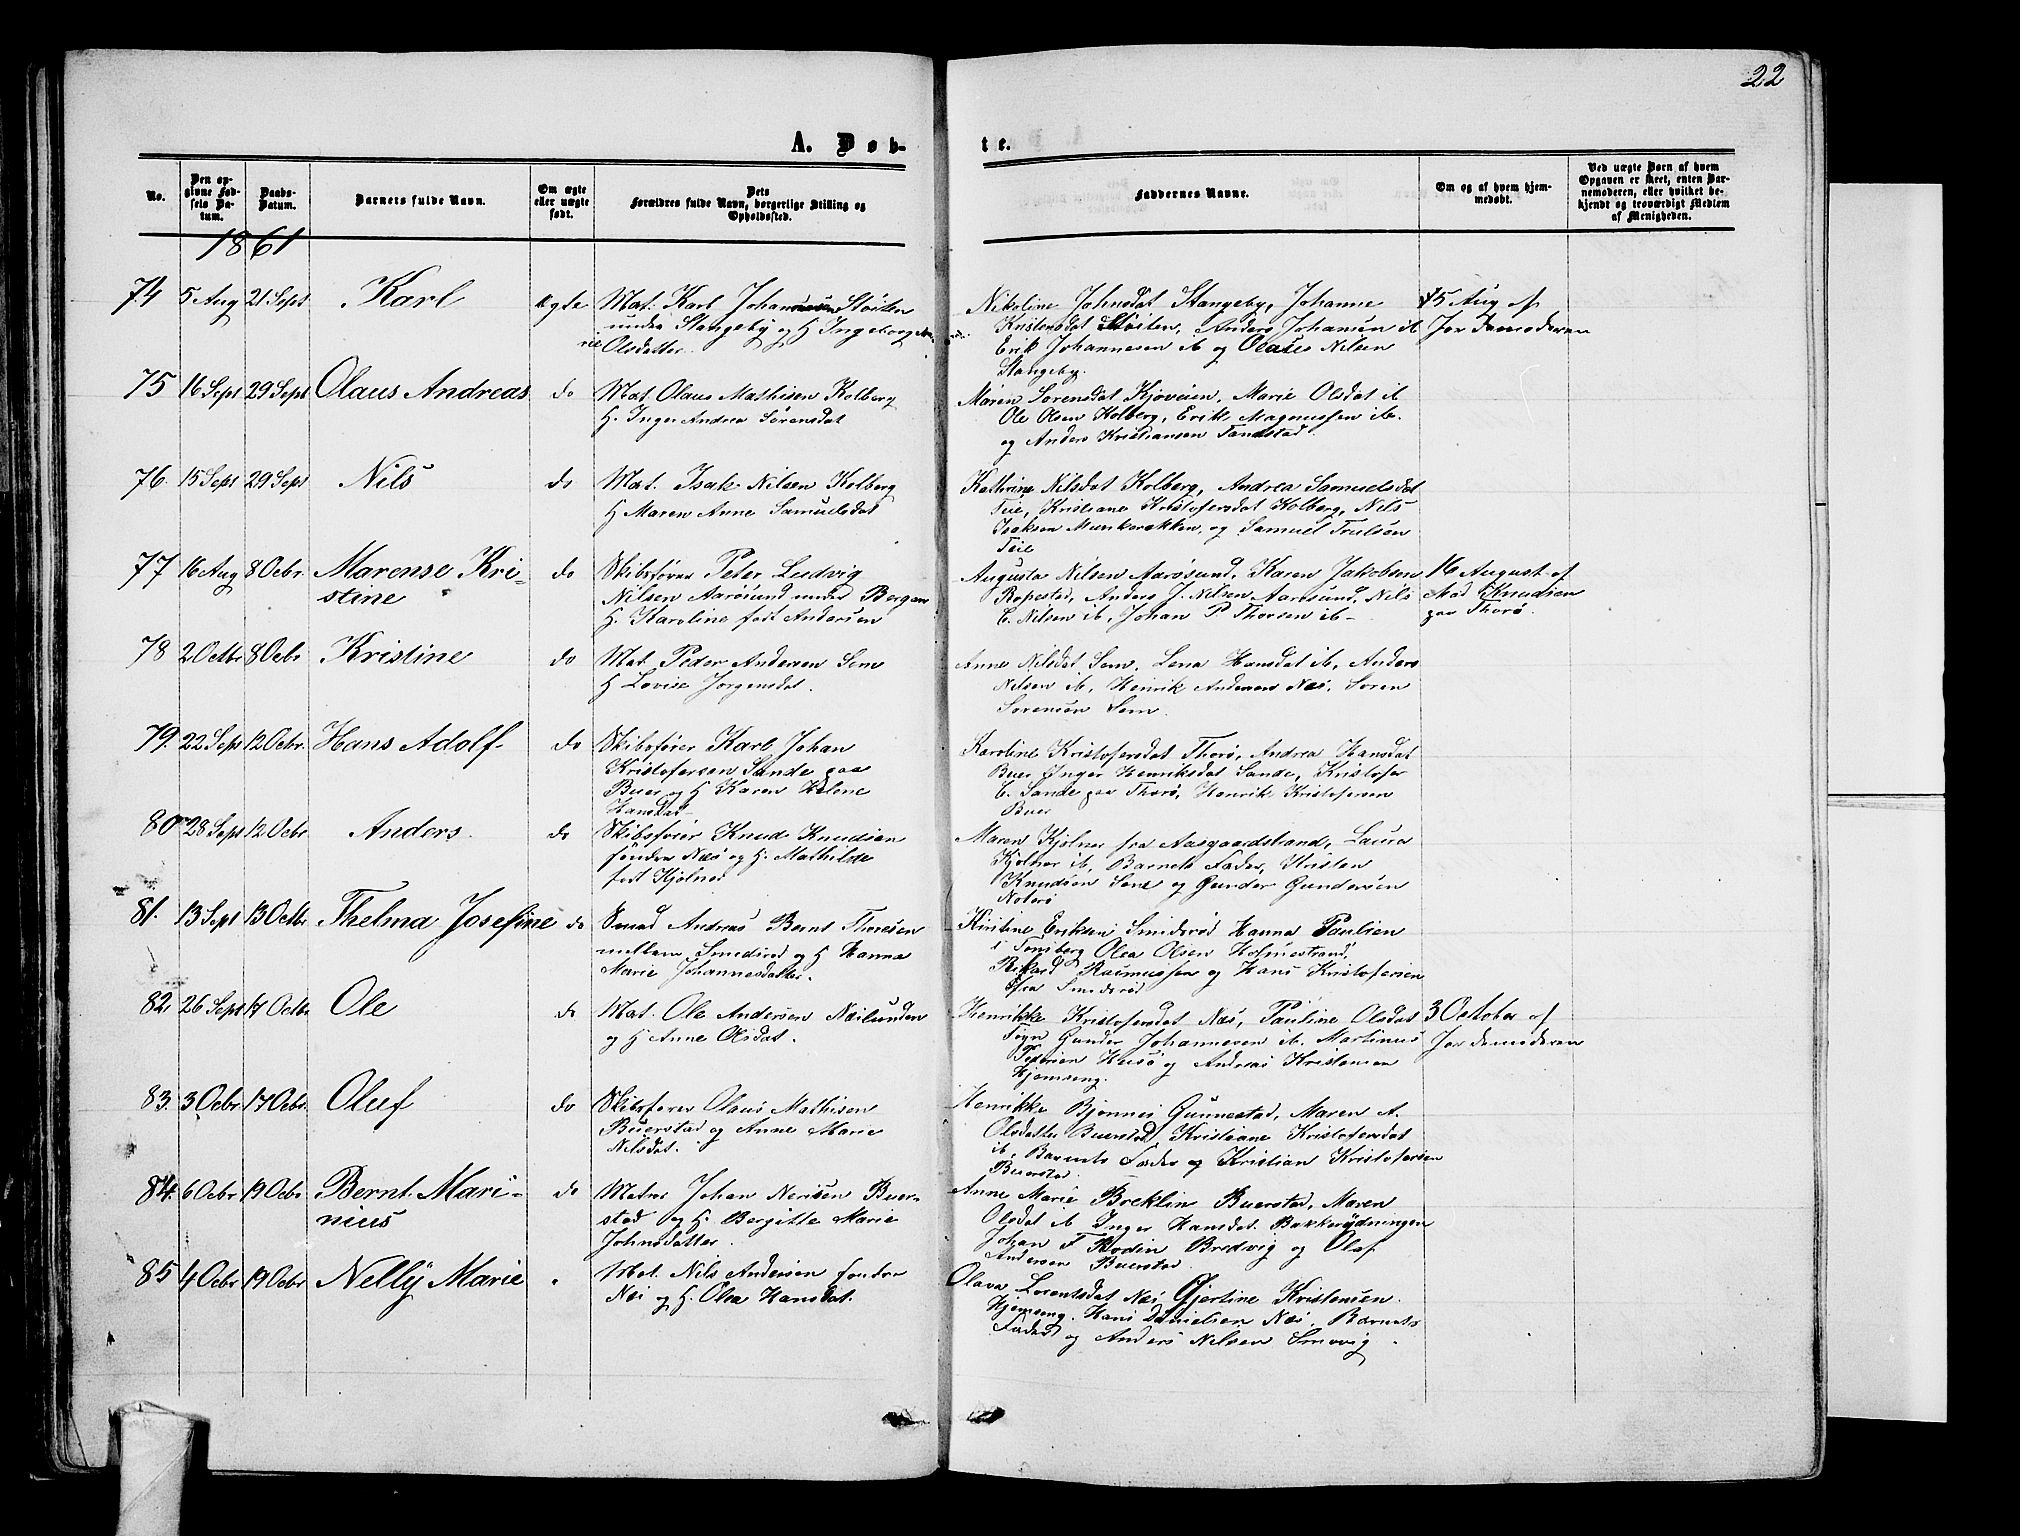 22
A. Døb-
te.
No.
Den op-
givne Fød-
sels Da-
tum.
Daabs-
Datum.
Barnets fulde Navn.
Om ægte
eller uægte
født.
Dets
Forældres fulde Navn, borgerlige Stilling og
Opholdssted.
Faddernes Navne.
Om og af hvem hjem-
medøbt.
Ved uægte Børn af hvem
Opgaven er skeet, enten Bar-
nemoderen, eller hvilket be-
kjendt og troværdigt Medlem
af Menigheden.
1861
74 5 Aug 21 Sept Karl ægte
Mat. Karl Johannesen Støiten
under Stangeby og H Ingeborg
Olsdatter
Nikoline Johnsdat Stangeby, Johanne
Kristensdat Støiten, Anders Johansen ib
Erik Johannesen ib og Olaus Nilsen
Stangeby.
5 Aug af
Jordemoderen
75 16 Sept 29 Sept Olaus Andreas do
Mat. Olaus Mathisen Kolberg
H. Inger Andrea Sørensdat
Maren Sørensdat Kjøveien, Marie Olsdat ib
Ole Olsen Kolberg, Erik Magnussen ib.
og Anders Kristiansen Tandstad.
76. 15 Sept 29 Sept Nils do
Mat. Isak Nilsen Kolberg
H Maren Anne Samuelsdat
Kathrine Nilsdat Kolberg, Andrea Samuelsdat
Teie, Kristiane Kristofersdat Kolberg, Nils
Isaksen Munkerækken, og Samuel Trulsøn
Teie
77 16 Aug 8 Ocbr. Marense Kri-
stine do
Skibsfører Peter Ludvig
Nilsen Aarøsund under Bergan
H. Karoline født Andersen
Augusta Nilsen Aarøsund, Karen Jakobsen
Ropestad, Anders J. Nilsen Aarøsund, Nils
C. Nilsen ib, Johan P Thorsen ib -
16 August af
Mad Knudsen
paa Thorø.
78 2 Octbr 8 Ocbr Kristine do
Mat Peder Andersen Sem
H Lovise Jørgensdat.
Anne Nilsdat Sem, Lena Hansdat ib, Anders
Nilsen ib, Henrik Andersen Næs, Søren
Sørensøn Sem.
79. 22 Sept 12 Ocbr. Hans Adolf do
Skibsfører Karl Johan
Kristofersen Sande paa
Buer og H Karen Helene
Hansdat
Karoline Kristofersdat Thorø, Andrea Hansdat
Buer Inger Henriksdat Sande, Kristofer
C. Sande paa Thorø, Henrik Kristofersen
Buer
80 28 Sept 12 Ocbr Anders do
Skibsfører Knud Knudsen
søndre Næs og H. Mathilde
født Kjølner
Maren Kjølner fra Aasgaardstrand, Laura
Kjølner ib, Barnets Fader, Kristen
Knudsen Sene og Gunder Gundersen
Noterø
81. 13 Sept 13 Octbr Thelma Josefine do
Smed Andreas Bernt Thoresen
mellem Smidsrød og H Hanna
Marie Johannesdatter.
Kirstine Eriksen Smidsrød Hanna Paulsen
i Tønsberg Olea Olsen Holmestrand,
Rikard Rasmussen og Hans Kristofersen
fra Smidsrød
82. 26 Sept 17 Octbr Ole do
Mat. Ole Andersen Næslunden
og H Anne Olsdat.
Henrikke Kristofersdat Næs, Pauline Olsdat
Føyn Gunder Johannesen ib. Martinus
Pedersen Husø og Andreas Kristensen
Hjemseng.
3 October af
Jordemoderen
83. 3 Ocbr 17 Ocbr. Oluf do
Skibsfører Olaus Mathisen
Buerstad og Anne Marie
Nilsdat.
Henrikke Bjønnes Gunnestad, Maren A.
Olsdatter Buerstad, Kristiane Kristofersdat
ib, Barnets Fader og Kristian Kristofersen
Buerstad
84. 6 Ocbr 19 Ocbr Bernt Mari-
nius do
Matros Johan Nerisen Buer-
stad og H. Bergitte Marie
Johnsdatter.
Anne Marie Breklin Buerstad, Maren
Olsdat ib Inger Hansdat Bakkerydningen
Johan F Rodin Bredvig og Olaf
Andersen Buerstad
85 4 Ocbr 19 Ocbr Nelly Marie "
Mat. Nils Andersen søndre
Næs og H. Olea Hansdat.
Olava Lorentsdat Næs Gjertine Kristensen
Hjemseng. Hans Danielsen Næs, Barnets
Fader og Anders Nilsen Smevig.